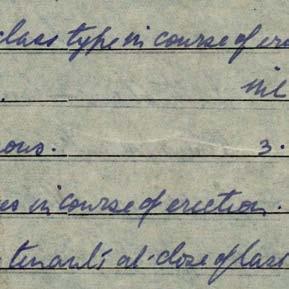 class type in course of ere
nil
ous. 3.
es in course of erection.
tenants at close of last